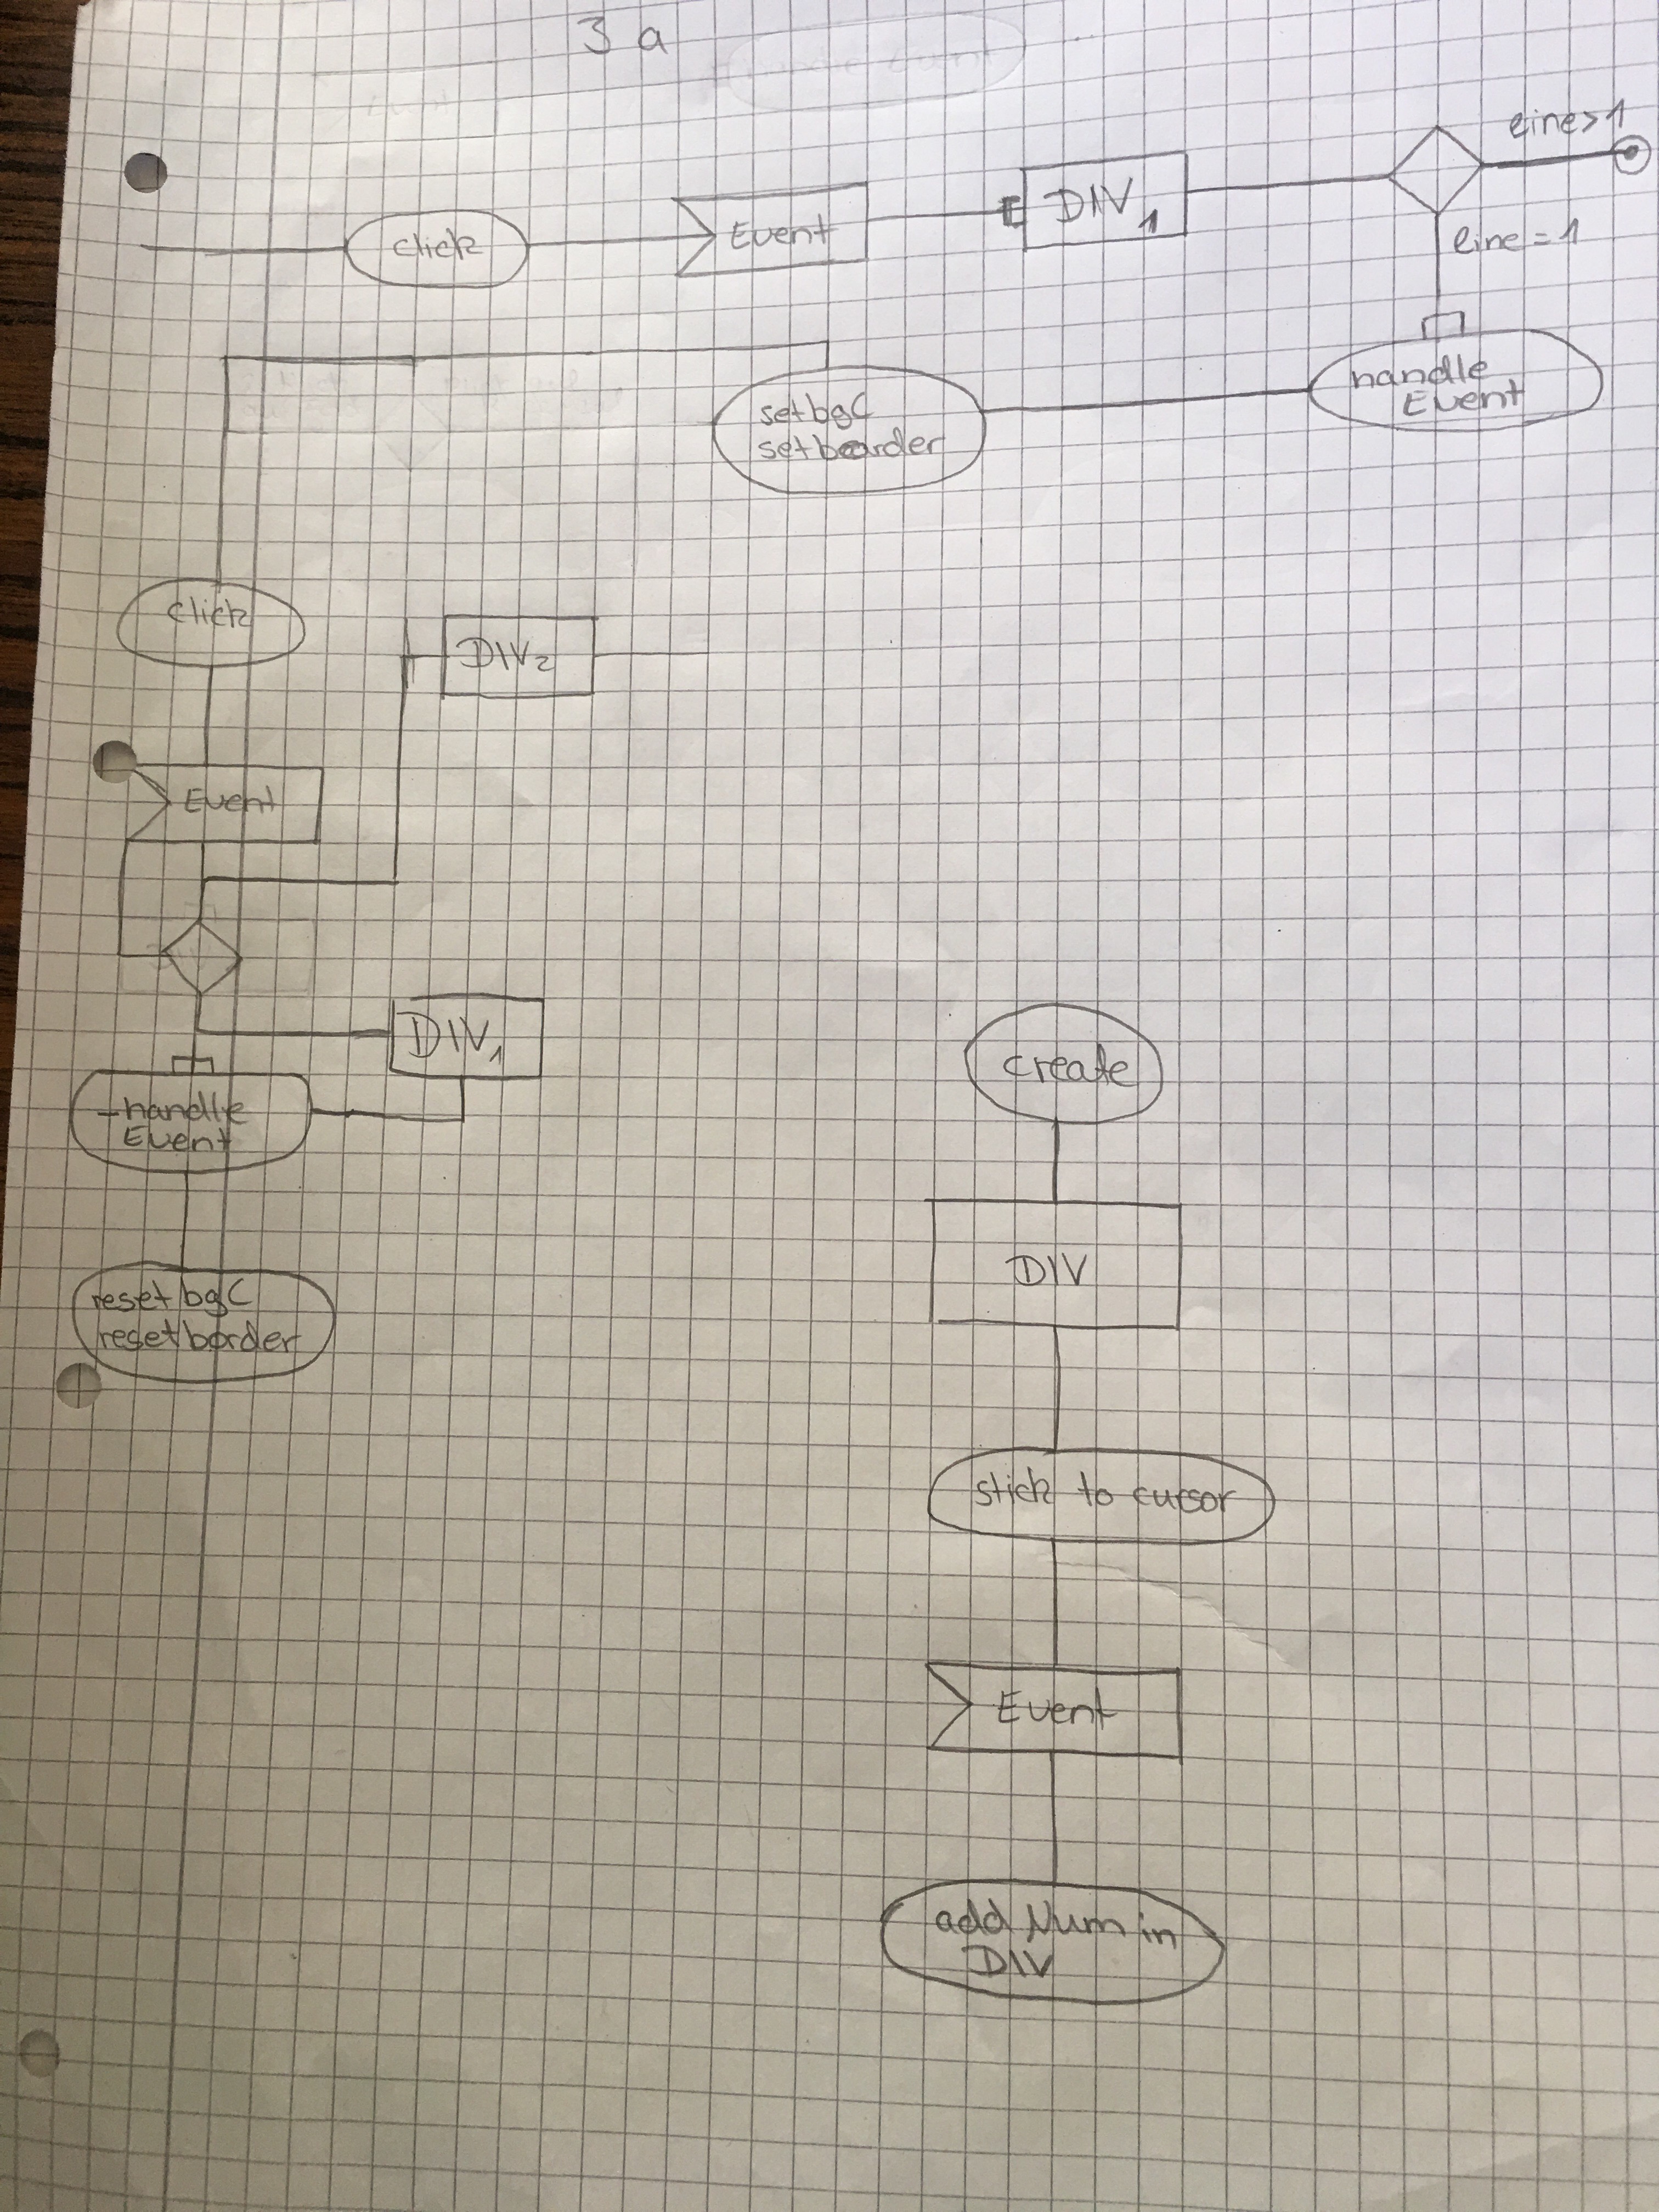 3 a
click
Event
DIV1
line>1
line=1
handle
Event
setbgC
setborder
click
DIV2
Event
DIV1
handle
Event
reset bgC
resetborder
create
DIV
stick to cursor
Event
add Num in
DIV